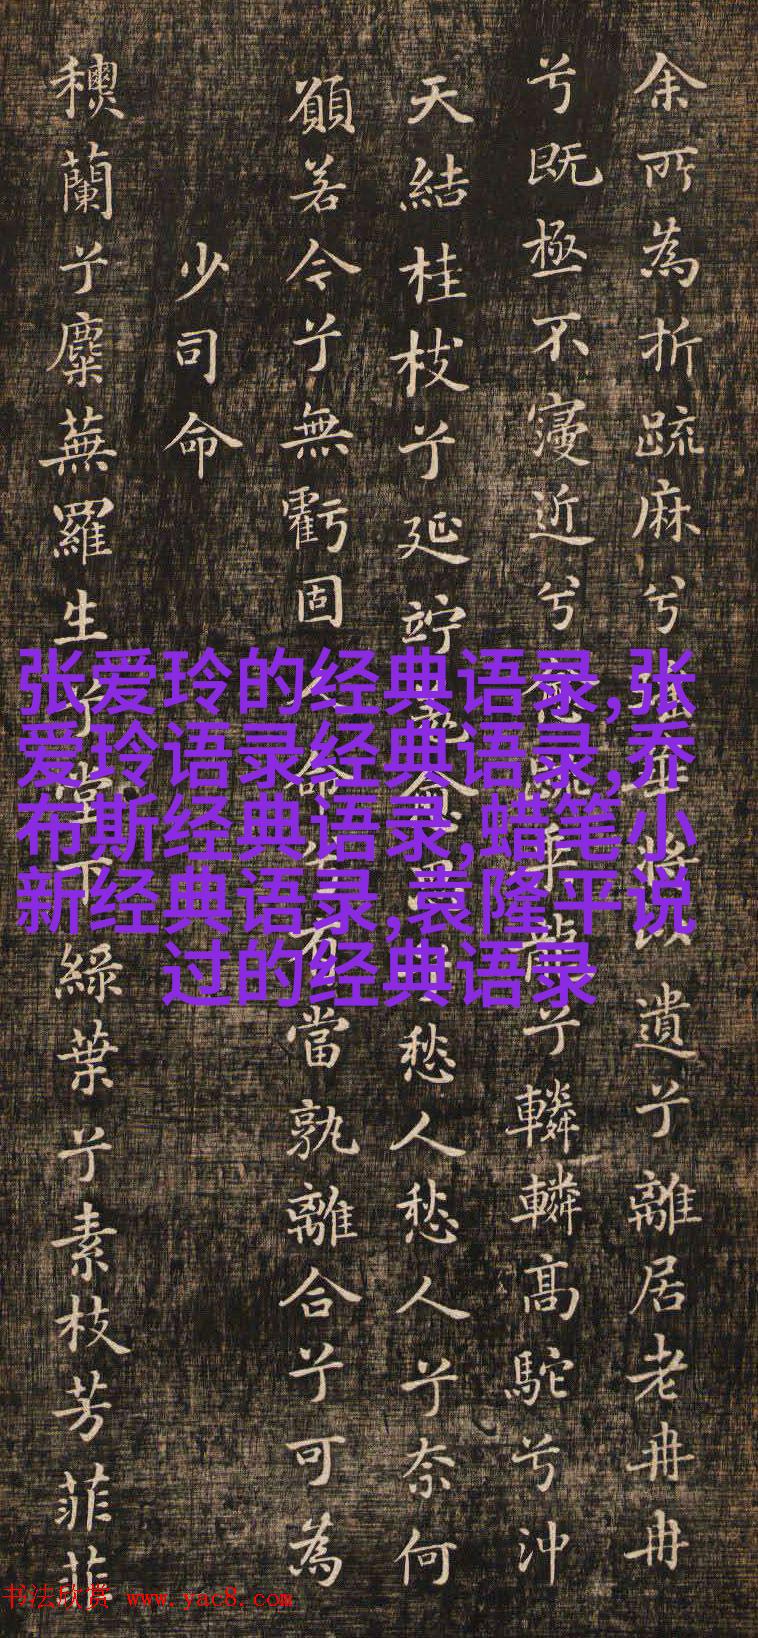 余所為折䟽麻兮瑤華將以遺兮離居老冉冉
兮既極不寖近兮愈䟽乘龍兮轔轔高駝兮沖
天結桂枝兮延竚羌愈思兮愁人愁人兮奈何
願若今兮無虧固人命兮有當孰離合兮可為
少司命
蘭兮麋蕪羅生兮堂下綠葉兮素枝芳菲菲
张爱玲的经典语录,张
爱玲语录经典语录,乔
布斯经典语录,蜡笔小
新经典语录,袁隆平说
过的经典语录
书法欣赏 www.yac8.com